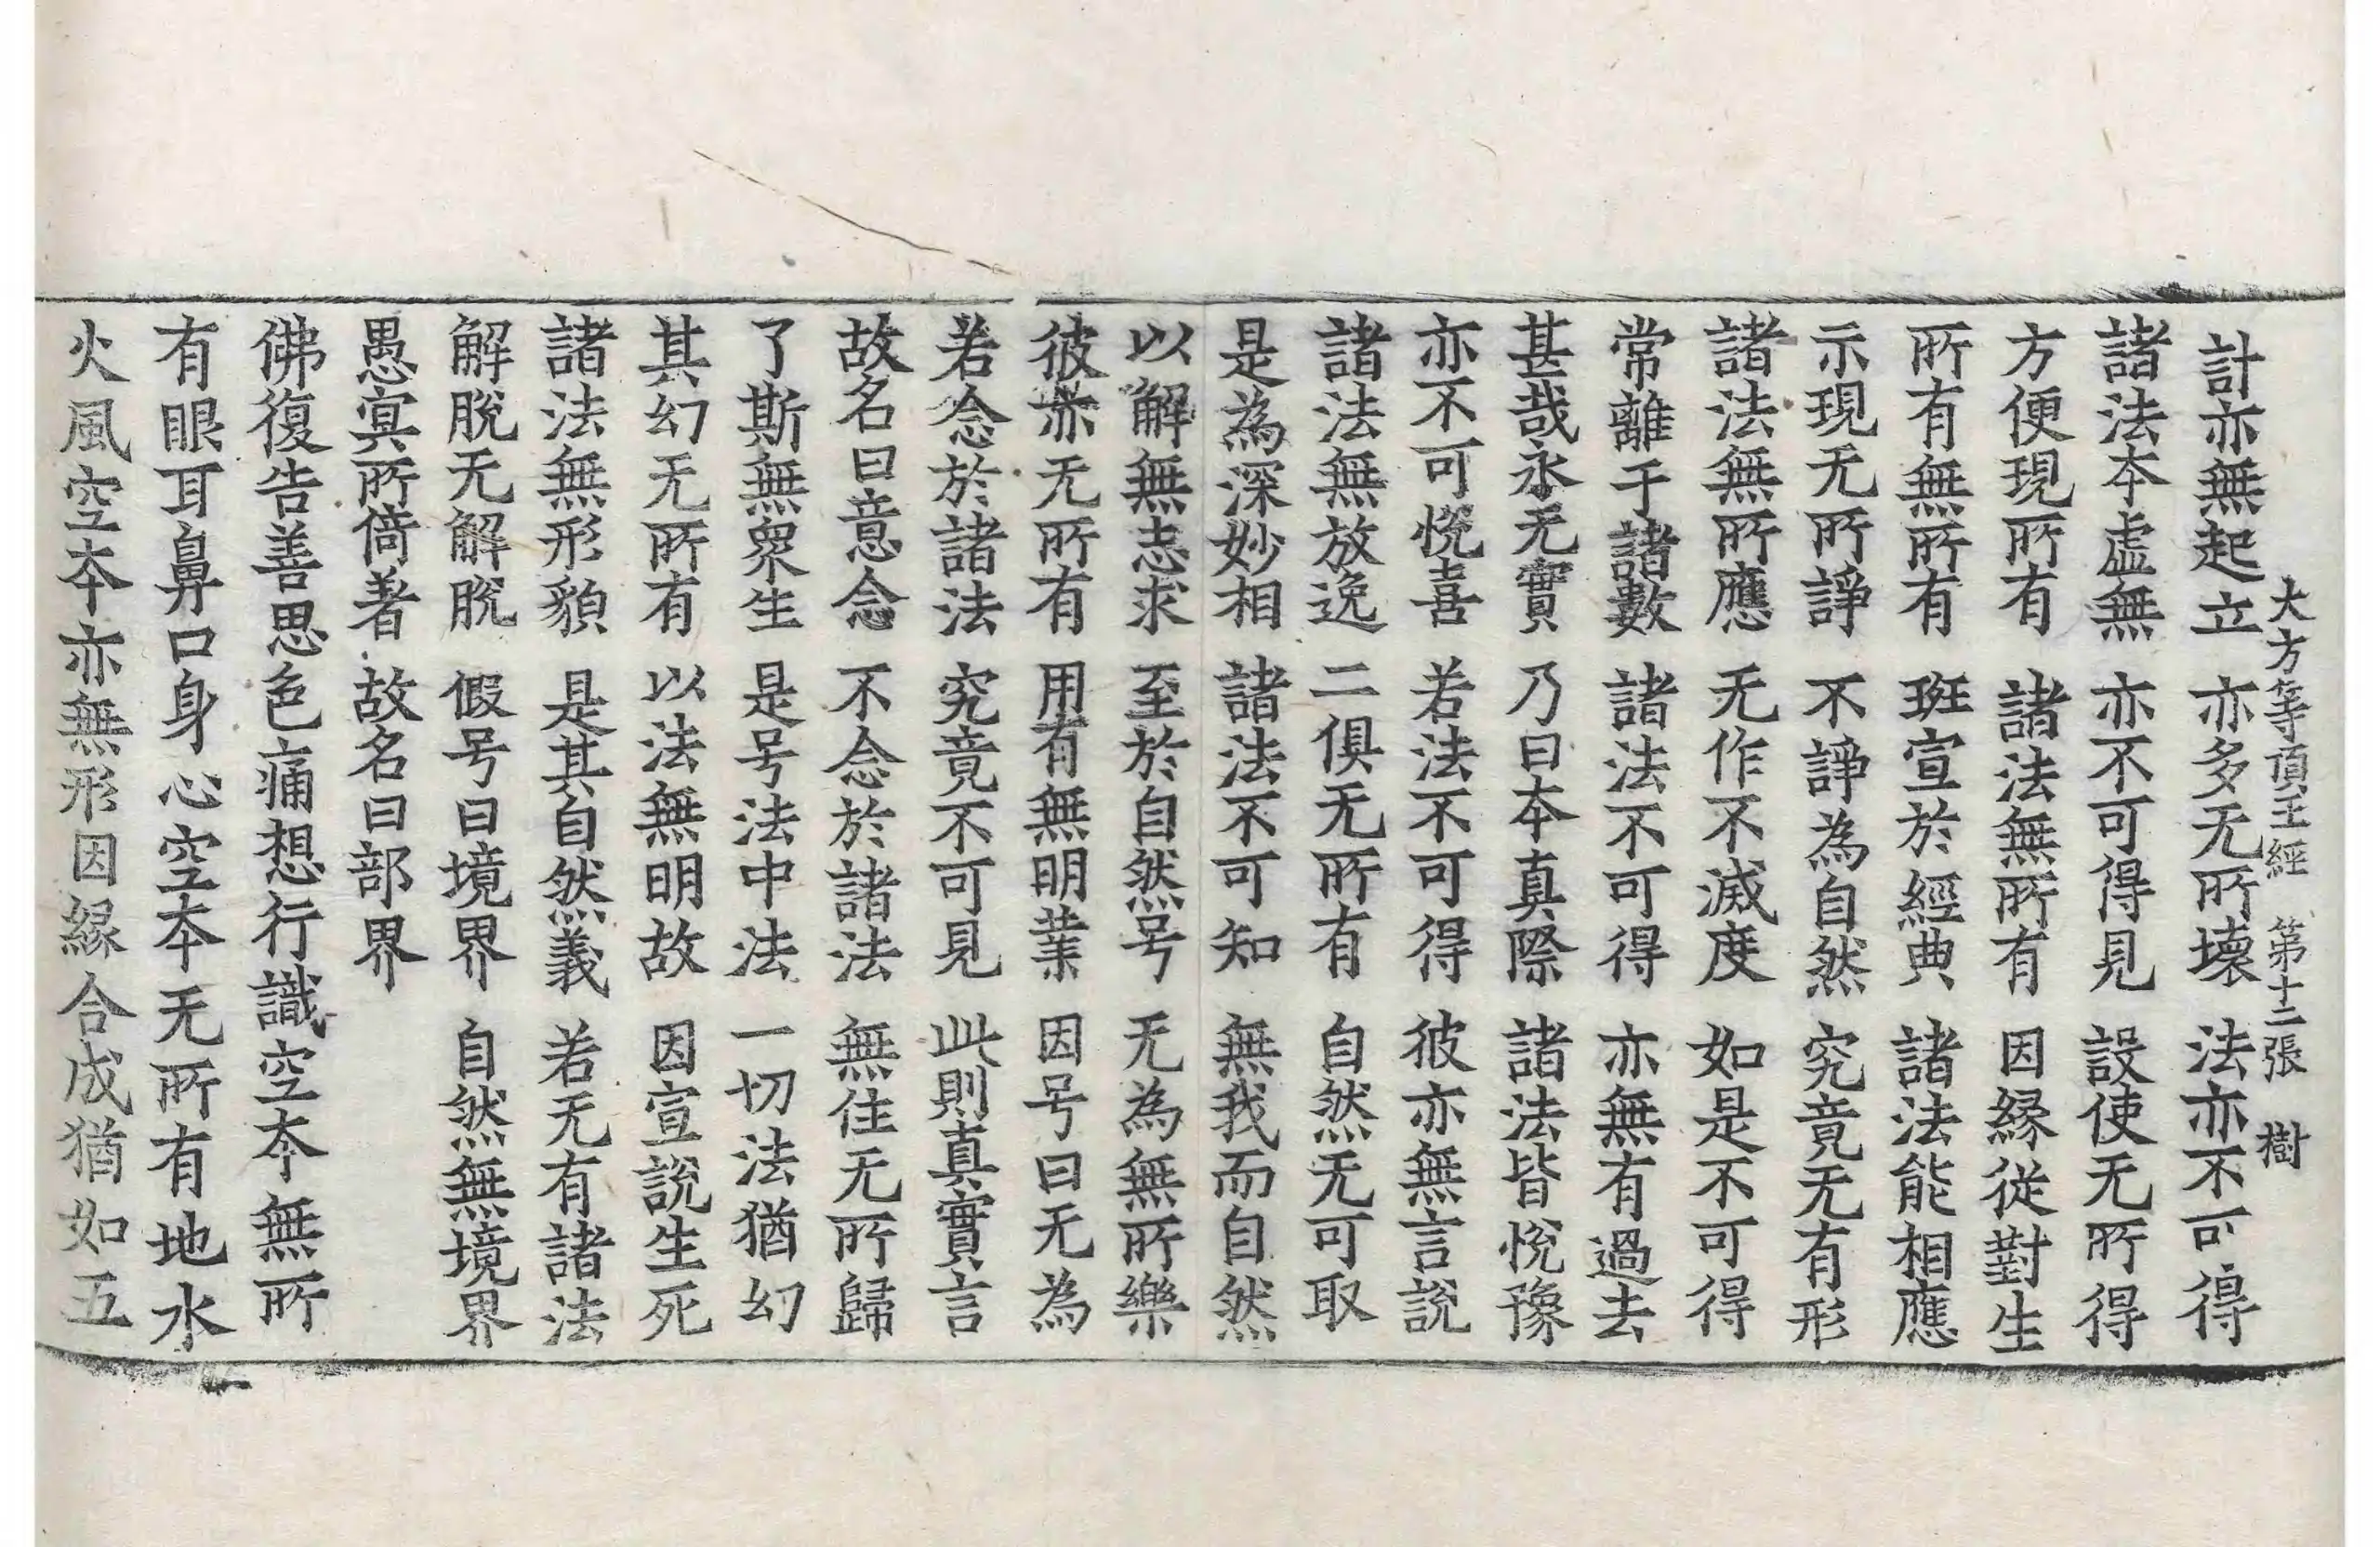 大方等頂王經　第十二張　樹
計亦無起立　亦多无所壞　法亦不可得
諸法本虛無　亦不可得見　設使无所得
方便現所有　諸法無所有　因緣從對生
所有無所有　班宣於經典　諸法能相應
示現无所諍　不諍為自然　究竟无有形
諸法無所應　无作不滅度　如是不可得
常離于諸數　諸法不可得　亦無有過去
甚哉永无實　乃曰本真際　諸法皆悅豫
亦不可悅喜　若法不可得　彼亦無言說
諸法無放逸　二俱无所有　自然无可取
是為深妙相　諸法不可知　無我而自然
以解無志求　至於自然号　无為無所樂
彼亦无所有　用有無明業　因号曰无為
若念於諸法　究竟不可見　此則真實言
故名曰意念　不念於諸法　無住无所歸
了斯無衆生　是号法中法　一切法猶幻
其幻无所有　以法無明故　因宣說生死
諸法無形貌　是其自然義　若无有諸法
解脫无解脫　假号曰境界　自然無境界
愚冥所倚著　故名曰部界
佛復告善思色痛想行識空本無所
有眼耳鼻口身心空本无所有地水
火風空本亦無形因緣合成猶如五